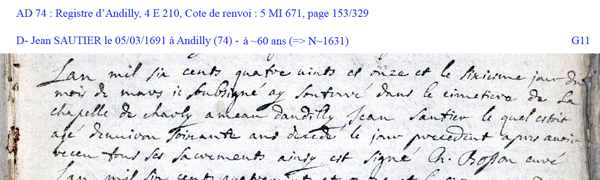 AD 74 : Registre d'Andilly, 4 E 210, Cote de renvoi : 5 MI 671, page 153/329
D- Jean SAUTIER le 05/03/1691 à Andilly (74) - à ~60 ans (=> N~1631) G11
Lan mil six cents quatre vints et onze et le sixiesme jour du
mois de mars ie soubsigné ay enterré dans le cimetiere de La
chapelle de charly ameau dandilly Jean Sautier le quel estoit
agé denuiron soixante ans decedé le jour precedent apres auoir
receu tous ses sacrements ainsy est signé R. Bosson curé
Lan mil six cents quatre